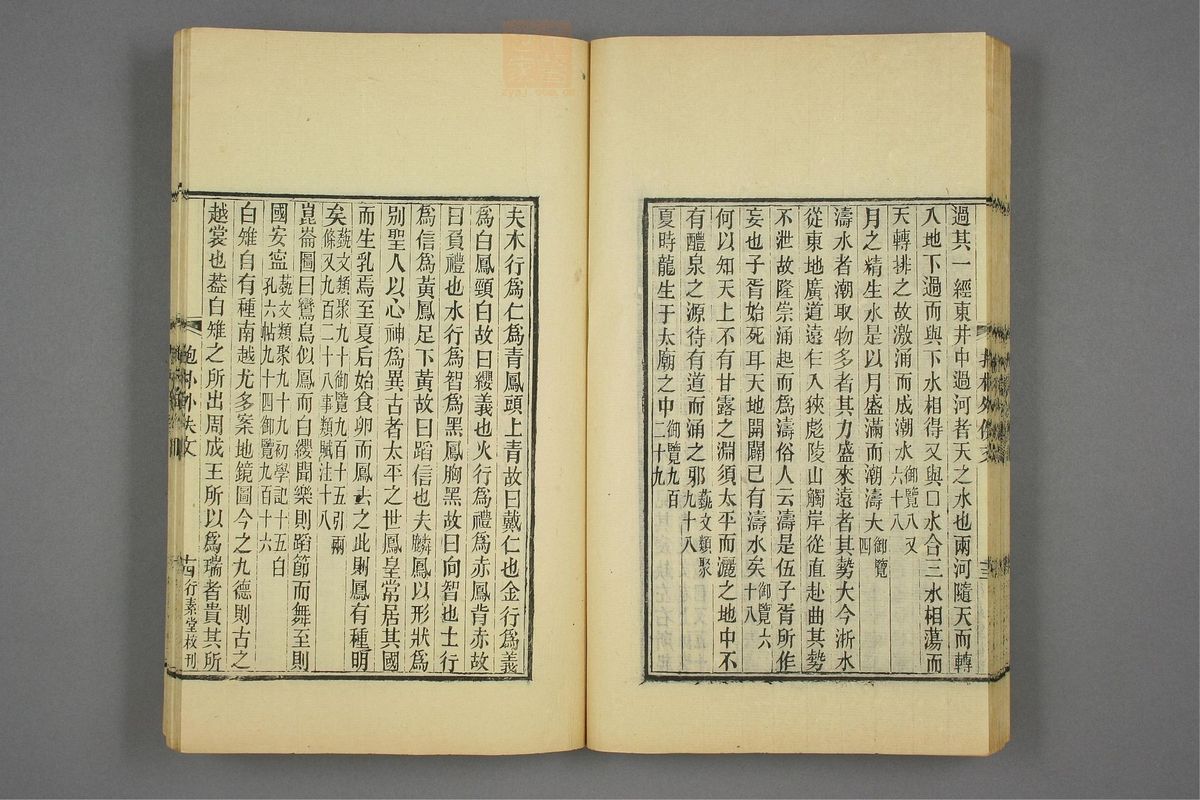 過其一經東井中過河者天之水也兩河隨天而轉
入地下過而與下水相得又與口水合三水相蕩而
天轉排之故激涌而成潮水御覽八又六十八
月之精生水是以月盛滿而潮濤大御覽四
濤水者潮取物多者其力盛來遠者其勢大今浙水
從東地廣道遠乍入狹彪陵山觸岸從直赴曲其勢
不泄故隆崇涌起而爲濤俗人云濤是伍子胥所作
妄也子胥始死耳天地開闢已有濤水矣御覽六十八
何以知天上不有甘露之淵須太平而灑之地中不
有醴泉之源待有道而涌之邪蓺文類聚九十八
夏時龍生于太廟之中御覽九百二十九
夫木行爲仁爲青鳳頭上青故曰戴仁也金行爲義
爲白鳳頸白故曰纓義也火行爲禮爲赤鳳背赤故
曰負禮也水行爲智爲黑鳳胸黑故曰向智也土行
爲信爲黃鳳足下黃故曰蹈信也夫麟鳳以形狀爲
別聖人以心神爲異古者太平之世鳳皇常居其國
而生乳焉至夏后始食卵而鳳去之此則鳳有種明
矣蓺文類聚九十御覽九百十五引兩條又九百二十八事類賦注十八
崑崙圖曰鸞鳥似鳳而白纓聞樂則蹈節而舞至則
國安寍蓺文類聚九十九初學記十五白孔六帖九十四御覽九百十六
白雉自有種南越尤多案地鏡圖今之九德則古之
越裳也葢白雉之所出周成王所以爲瑞者貴其所
十四
行素堂校刊